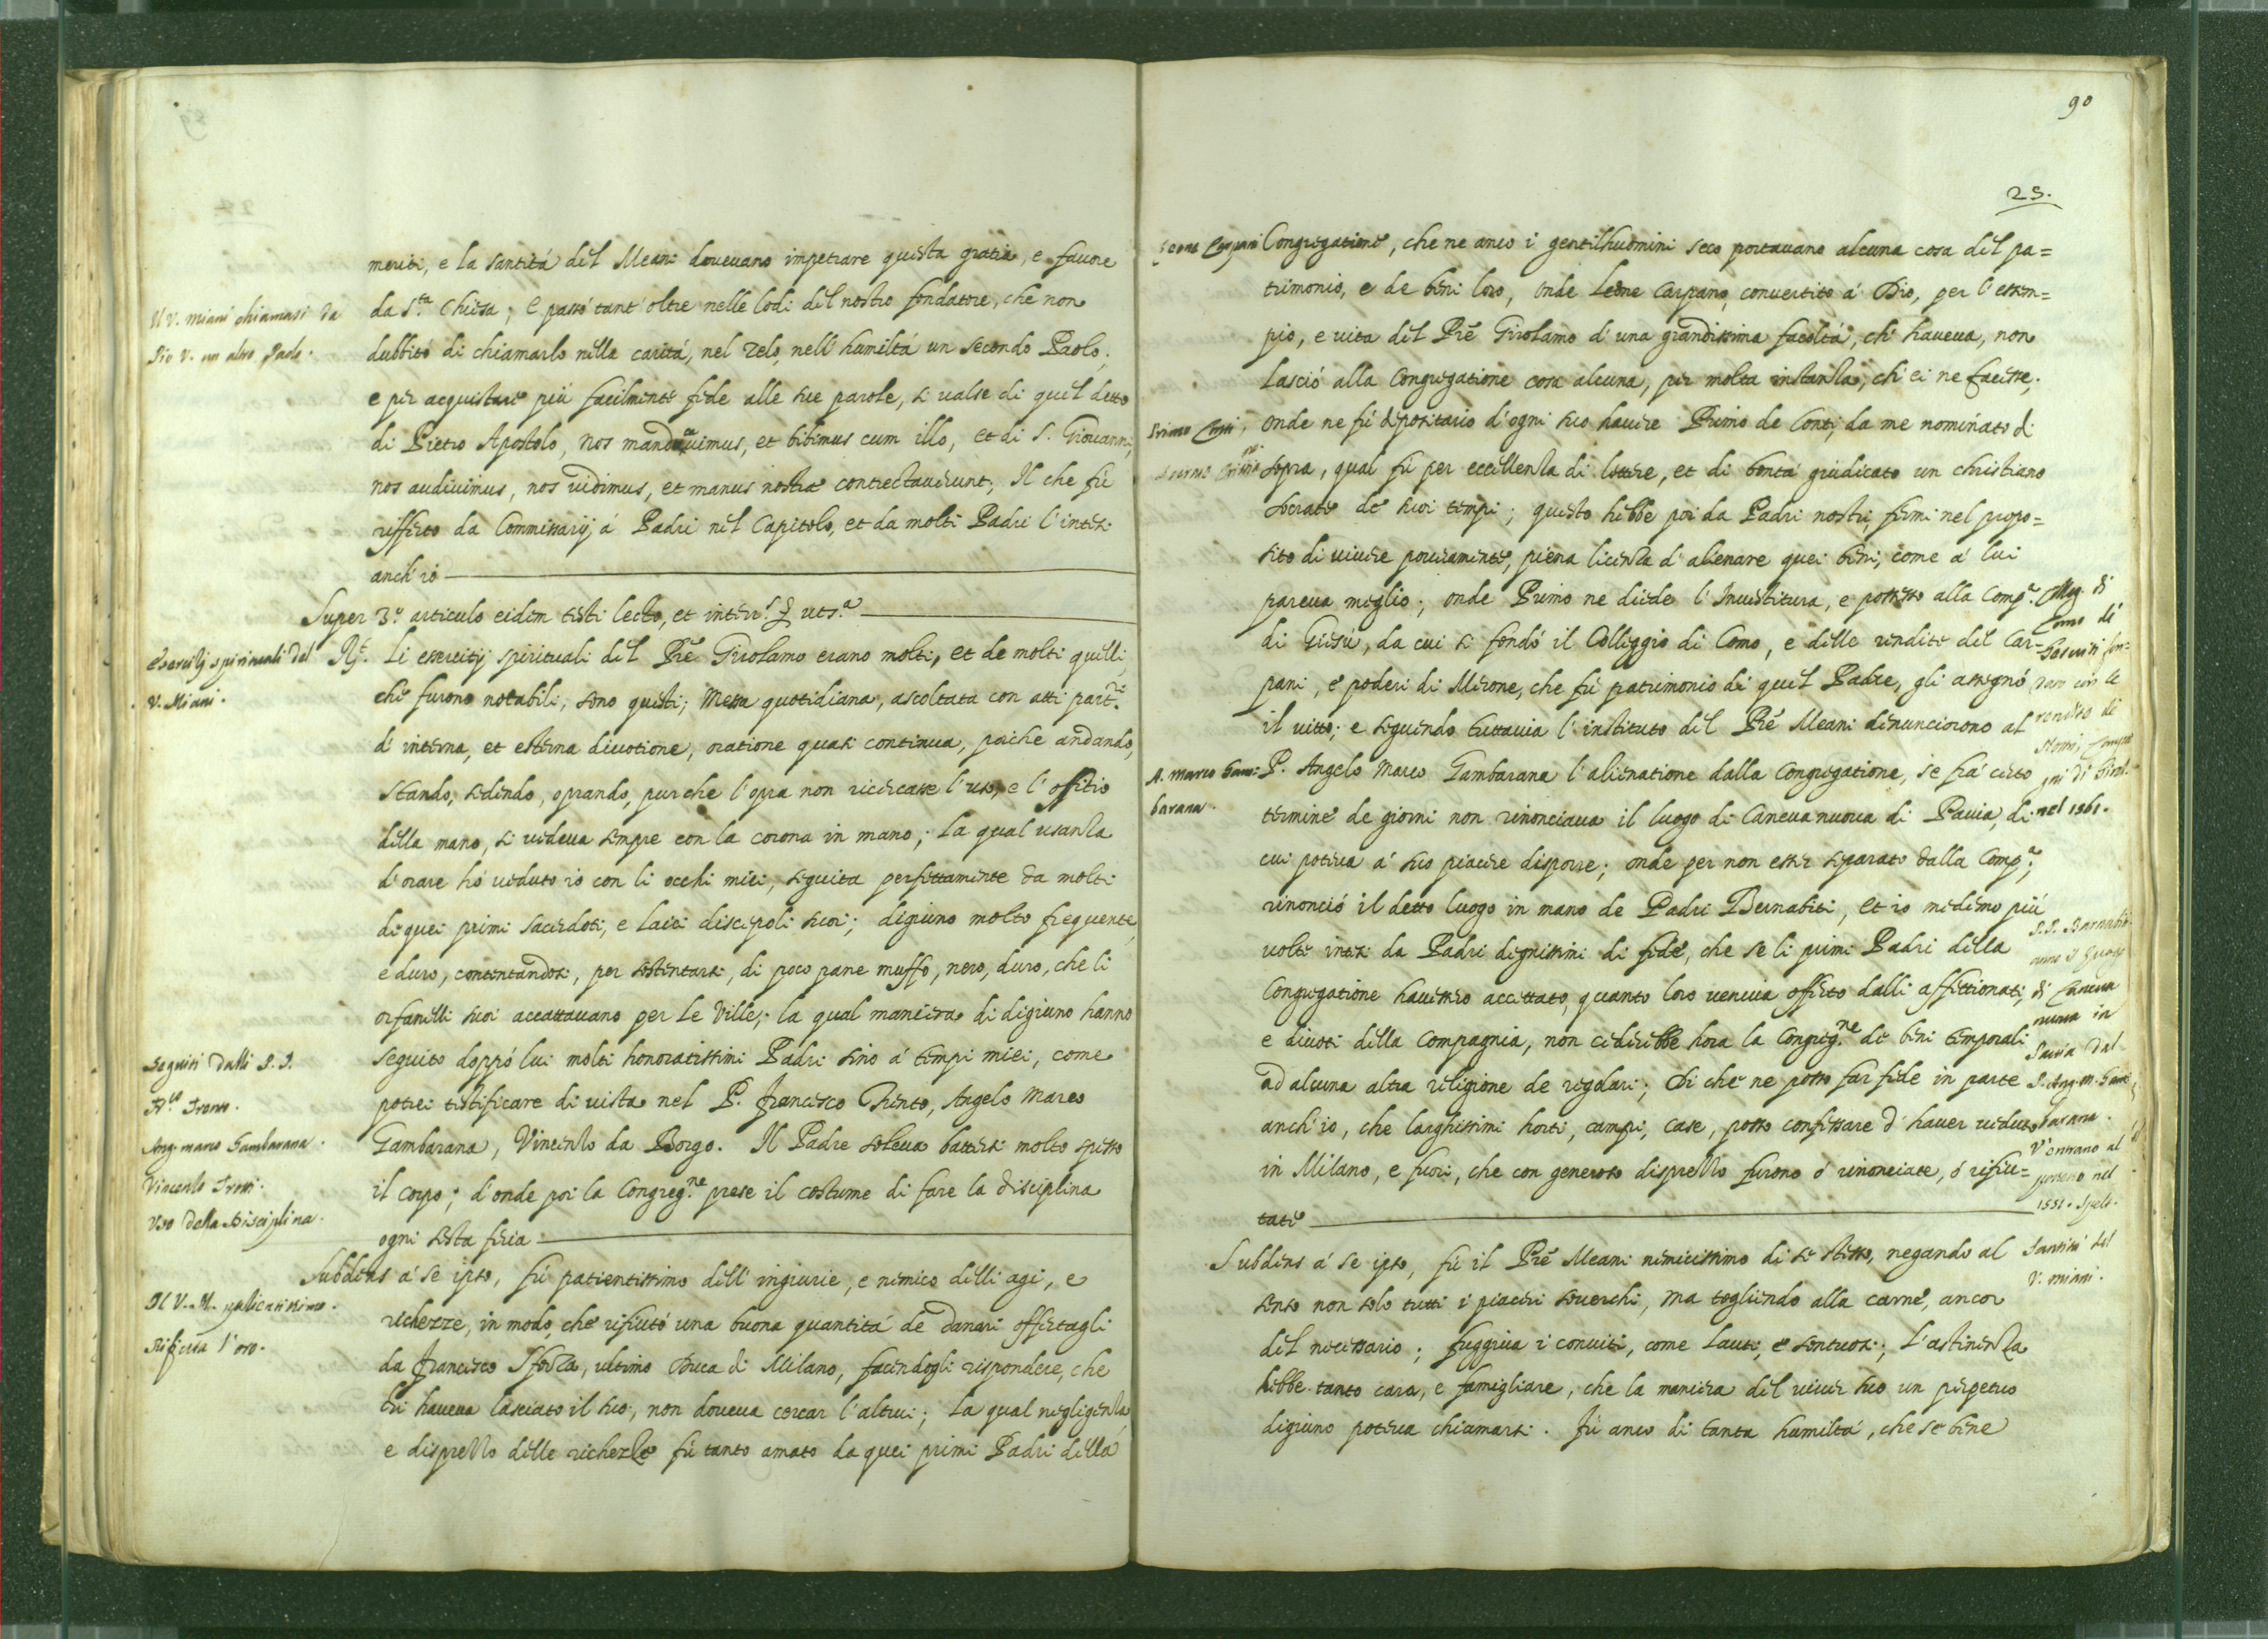 meriti, e la santitá del Meani dovevano impetrare questa gratia, e favore
da S.ta Chiesa; E passó tant'oltre nelle lodi del nostro fondatore, che non
dubbitó di chiamarlo nella caritá, nel zelo, nell'humiltá un secondo Paolo;
e per acquistare piú facilmente fede alle sue parole, si valse di quel detto
di Pietro Apostolo, Nos manducavimus, et bibimus cum illo, et di S. Giovanni,
nos audivimus, nos vidimus, et manus nostrae contrectaverunt; Il che fú
rifferto da Commissarij á Padri nel Capitolo, et da molti Padri l'intesi
anch'io
Super 3.o articulo eidem testi lecto, et interr.
Li esercitij spirituali del Prē Girolamo erano molti, et de molti quelli,
che furono notabili, sono questi; Messa quotidiana, ascoltata con atti part.ri
d'interna, et esterna divotione, oratione quasi continua, poiche andando,
stando, sedendo, oprando, purche l'opra non ricercasse l'uso, e l'offitio
della mano, si vedeva sempre con la corona in mano; La qual usanza
d'orare hó veduto io con li occhi miei, seguita perfettamente da molti
di quei primi sacerdoti, e laici discepoli suoi; digiuno molto frequente,
e duro, contentandosi, per sostentarsi, di poco pane muffo, nero, duro, che li
orfanelli suoi accattavano per le Ville; la qual maniera di digiuno hanno
seguito doppó lui molti honoratissimi Padri sino á tempi miei, come
potrei testificare di vista nel P. Francesco Trento, Angelo Marco
Gambarana, Vincenzo da Borgo. Il Padre soleva battersi molto spesso
il corpo; d'onde poi la Congreg.ne prese il costume di fare la disciplina
ogni sesta feria
Subdens á se ipso, fú patientissimo dell'ingiurie, e nemico delli agi, e
richezze, in modo, che rifiutó una buona quantitá de danari offertagli
da Francesco Sforza, ultimo Duca di Milano, facendogli rispondere, che
chi haveva lasciato il suo, non doveva cercar l'altrui; La qual negligenza,
e disprezzo delle richezze fú tanto amato da quei primi Padri della
Il V. Miani chiamasi da
Pio V. un altro Paolo.
Esercitij spirituali del
V. Miani.
Seguiti dalli P. P.
Fr.co Trento.
Ang. Marco Gambarana.
Vincenzo Trotti.
Uso della Disciplina.
Il V. M. patientissimo.
Rifiuta l'oro.
90
25.
Congregatione, che ne anco i gentilhuomini seco portavano alcuna cosa del pa=
trimonio, e de beni loro, onde Leone Carpano, convertito á Dio, per l'essem=
pio, e vita del Prē Girolamo d'una grandissima facoltá, ch'haveva, non
lasció alla Congregatione cosa alcuna, per molta instanza, ch'ei ne facesse;
onde ne fú depositario d'ogni suo havere Primo de Conti, da me nominato di
sopra, qual fú per eccellenza di lettere, et di bontá giudicato un christiano
Socrate de suoi tempi; questo hebbe poi da Padri nostri, fermi nel propo=
sito di vivere poveramente, piena licenza d'alienare quei beni, come á lui
pareva meglio; onde Primo ne diede l'Investitura, e possesso alla Comp.a
di Giesú, da cui si fondó il Colleggio di Como, e delle rendite del Car=
pani, e poderi di Merone, che fú patrimonio di quel Padre, gli assegnó
il vitto; e seguendo tuttavia l'instituto del Prē Meani denunciorono al
P. Angelo Marco Gambarana l'alienatione dalla Congregatione, se frá certo
termine de giorni non rinonciava il luogo di Caneva nuova di Pavia, di
cui poteva á suo piacere disporre; onde per non esser separato dalla Comp.a,
rinonció il detto luogo in mano de Padri Bernabiti, et io medemo piú
volte intesi da Padri dignissimi di fede, che se li primi Padri della
Congregatione havessero accettato, quanto loro veniva offerto dalli affettionati,
e divoti della Compagnia, non cederebbe hora la Congreg.ne de beni temporali
ad alcuna altra religione de regolari; Di che ne posso far fede in parte
anch'io, che larghissimi horti, campi, case, posso confessare d'haver veduto
in Milano, e fuori, che con generoso disprezzo furono ó rinonciate, ó rifiu=
tate
Subdens á se ipso, fú il Prē Meani nemicissimo di se stesso, negando al
senso non solo tutti i piaceri soverchi, ma togliendo alla carne, ancor
del necessario; fuggiva i conviti, come lauti, e sontuosi; L'astinenza
hebbe tanto cara, e famigliare, che la maniera del viver suo un perpetuo
digiuno poteva chiamarsi. Fú anco di tanta humiltá, che se bene
Leone Carpani
Primo Conti,
A. Marco Gam=
barana.
Coll. di
Como di
Gesuiti fon=
dato con le
rendite di
nel 1561.
P. P. Barnabiti
di Caneva
nuova in
Pavia dal
P. Ang. M. Gam
barana.
V'entrano al
possesso nel
1551.
Santitá del
V. Miani.